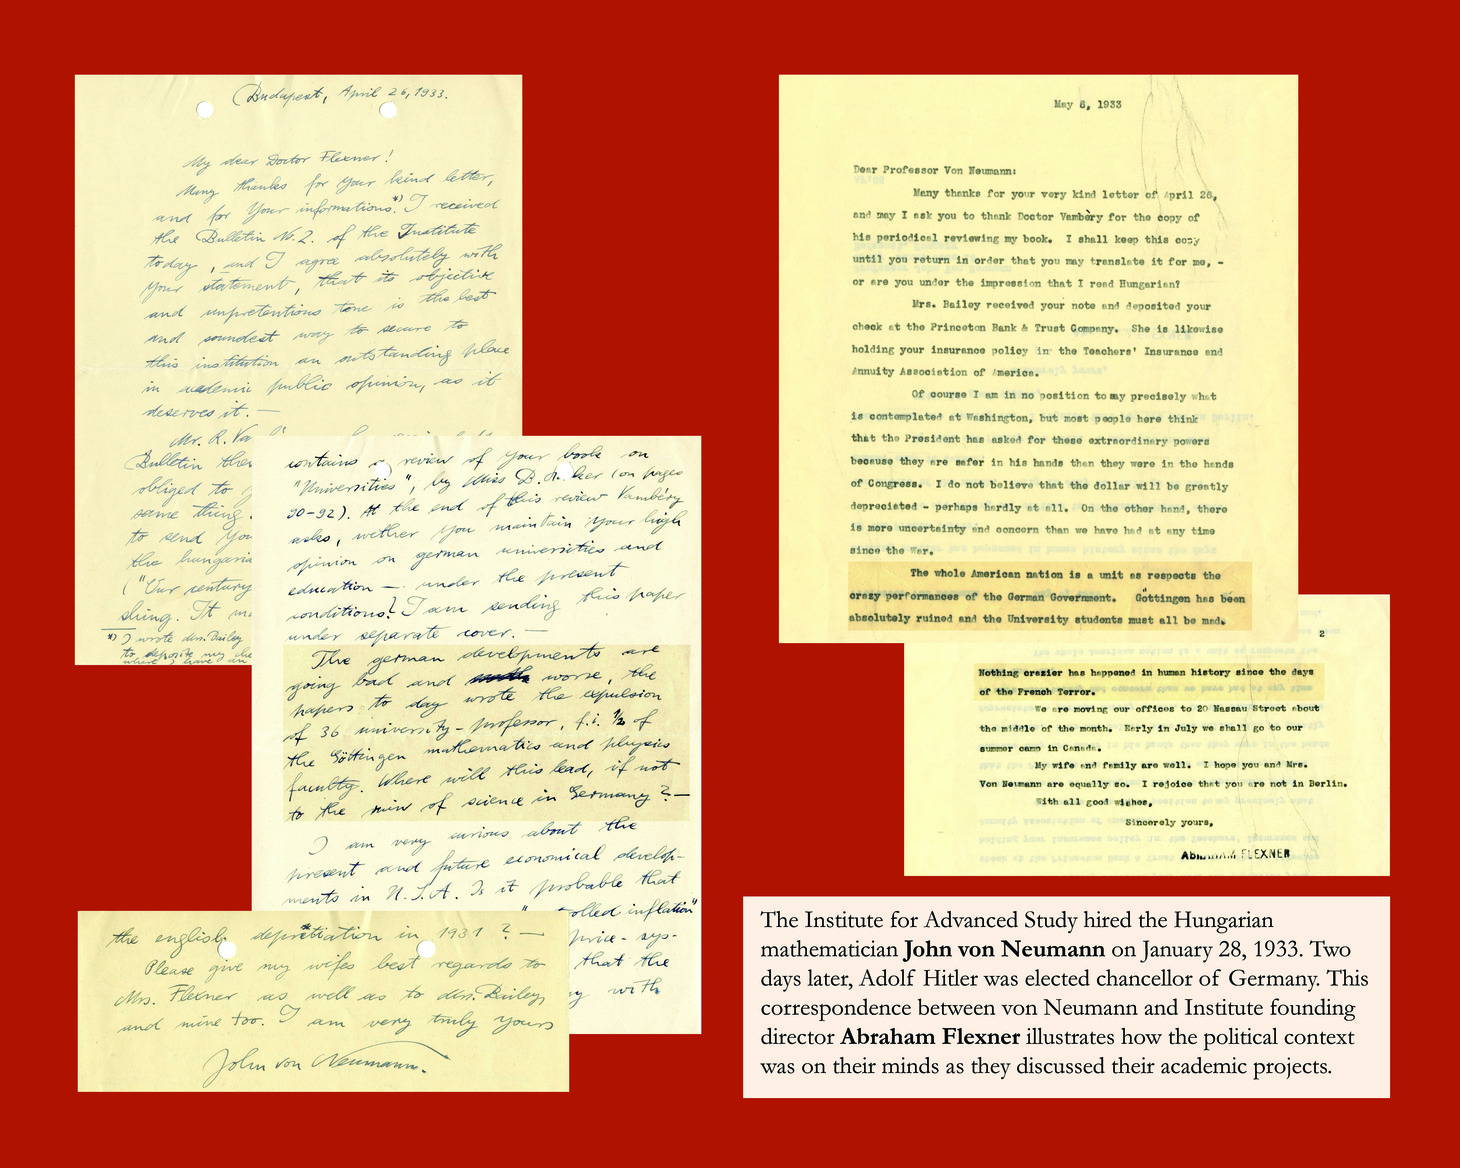 Budapest, April 26, 1933.
My dear Doctor Flexner!
Many thanks for your kind letter,
and for Your informations.*) I received
the Bulletin No. 2. of the Institute
today, and I agree absolutely with
Your statement, that its objective
and unpretentious tone is the best
and soundest way to secure to
this institution an outstanding place
in academic public opinion, as it
deserves it. —
Mr. R. Va
Bulletin then
obliged to
same thing.
to send You
the hungaria
("Our century
shing. It
*) I wrote Mrs. Bailey
to deposite my che
where I have an
contains a review of Your book on
"Universities", by Miss (on pages
90-92). At the end of this review Vambéry
asks, wether You maintain Your high
opinion on german universities and
education — under the present
conditions? I am sending this paper
under separate cover. —
The german developments are
going bad and worse, the
papers to day wrote the expulsion
of 36 university-professor, f.i. 1/2 of
the Göttingen mathematics and physics
faculty. Where will this lead, if not
to the ruin of science in Germany? —
I am very curious about the
present and future economical develop-
ments in U.S.A. Is it probable that
olled inflation"
price-sys-
that the
with
the english depretiation in 1931? —
Please give my wifes best regards to
Mrs. Flexner as well as to Mrs. Bailey,
and mine too. I am very truly yours
John von Neumann.
May 6, 1933
Dear Professor Von Neumann:
Many thanks for your very kind letter of April 26,
and may I ask you to thank Doctor Vambery for the copy of
his periodical reviewing my book. I shall keep this copy
until you return in order that you may translate it for me, -
or are you under the impression that I read Hungarian?
Mrs. Bailey received your note and deposited your
check at the Princeton Bank & Trust Company. She is likewise
holding your insurance policy in the Teachers' Insurance and
Annuity Association of America.
Of course I am in no position to say precisely what
is contemplated at Washington, but most people here think
that the President has asked for these extraordinary powers
because they are safer in his hands than they were in the hands
of Congress. I do not believe that the dollar will be greatly
depreciated - perhaps hardly at all. On the other hand, there
is more uncertainty and concern than we have had at any time
since the War.
The whole American nation is a unit as respects the
crazy performances of the German Government. Göttingen has been
absolutely ruined and the University students must all be mad.
2
Nothing crazier has happened in human history since the days
of the French Terror.
We are moving our offices to 20 Nassau Street about
the middle of the month. Early in July we shall go to our
summer camp in Canada.
My wife and family are well. I hope you and Mrs.
Von Neumann are equally so. I rejoice that you are not in Berlin.
With all good wishes,
Sincerely yours,
ABRAHAM FLEXNER
The Institute for Advanced Study hired the Hungarian
mathematician John von Neumann on January 28, 1933. Two
days later, Adolf Hitler was elected chancellor of Germany. This
correspondence between von Neumann and Institute founding
director Abraham Flexner illustrates how the political context
was on their minds as they discussed their academic projects.